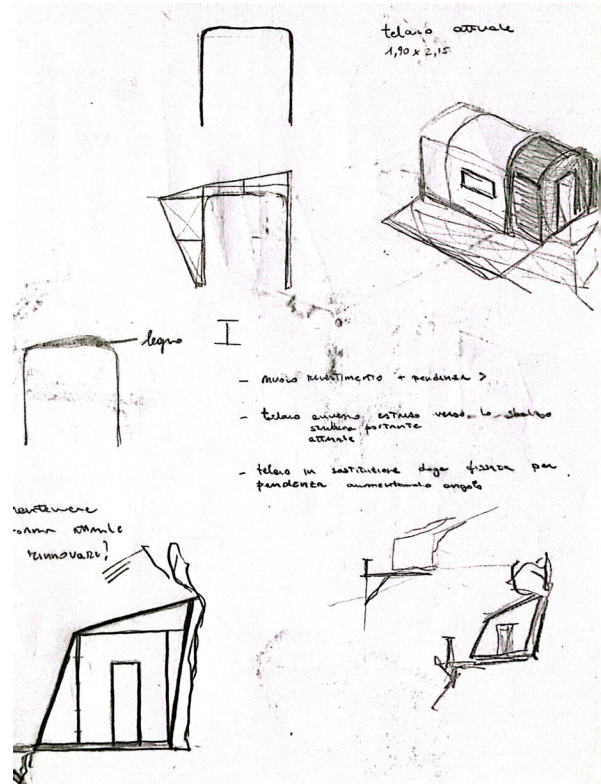 telaio attuale
1,90 x 2,15
legno
- nuovo rivestimento + pendenza >
- telaio estruso verso lo sbalzo
struttura portante
attuale
- telaio in sostituzione doga fissata per
pendenza aumentando angolo
mantenere
forma attuale
rinnovare?